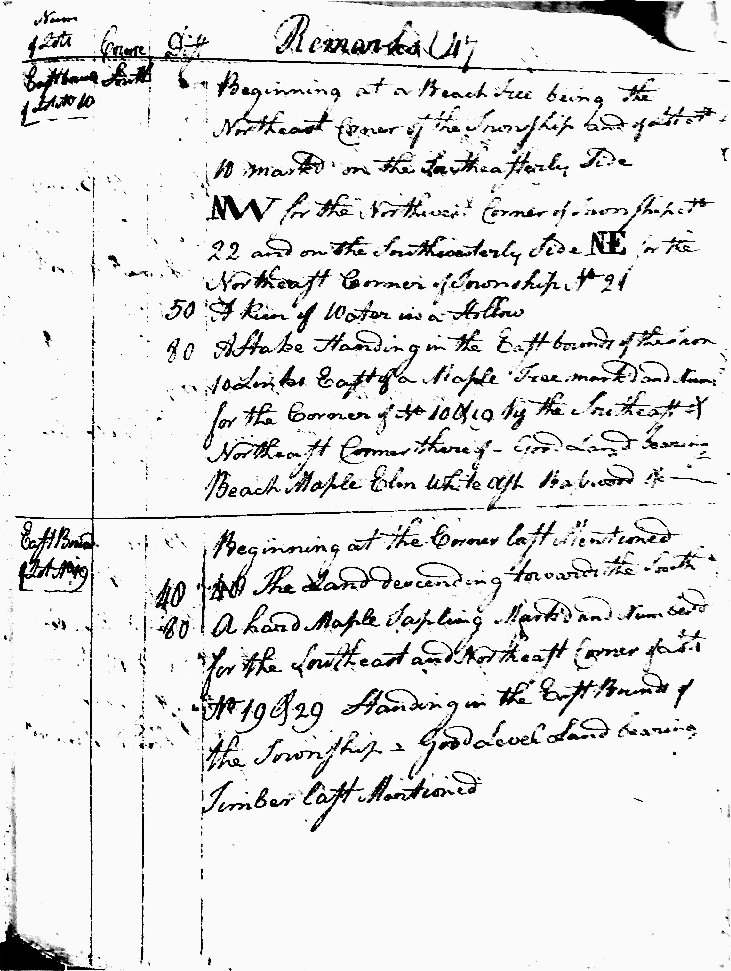 Num
of Lots Course Dist Remarks (47
East bounds South
of Lot No 10
Beginning at a Beach Tree being the
Northeast Corner of the Township and of Lot No
10 marked on the Southeasterly Side
NW for the Northwest Corner of Township No
22 and on the Southwesterly Side NE for the
Northeast Corner of Township No 21
50 A Run of Water in a Hollow
80 A Stake Standing in the East bounds of the Town
10 Links East of a Maple Tree markd and Num
for the Corner of No 10 & 19 by the Southeast &
Northeast Corner thereof - Good Land bearing
Beach Maple Elm White Ash Baswood &c
East Bounds
of Lot No 19
Beginning at the Corner last Mentioned
40 40 The Land descending towards the South
80 A hard Maple Sapling Markd and Numberd
for the Southeast and Northeast Corner of Lots
No 19 & 29 Standing in the East Bounds of
the Township - Good Level Land bearing
Timber last Mentioned